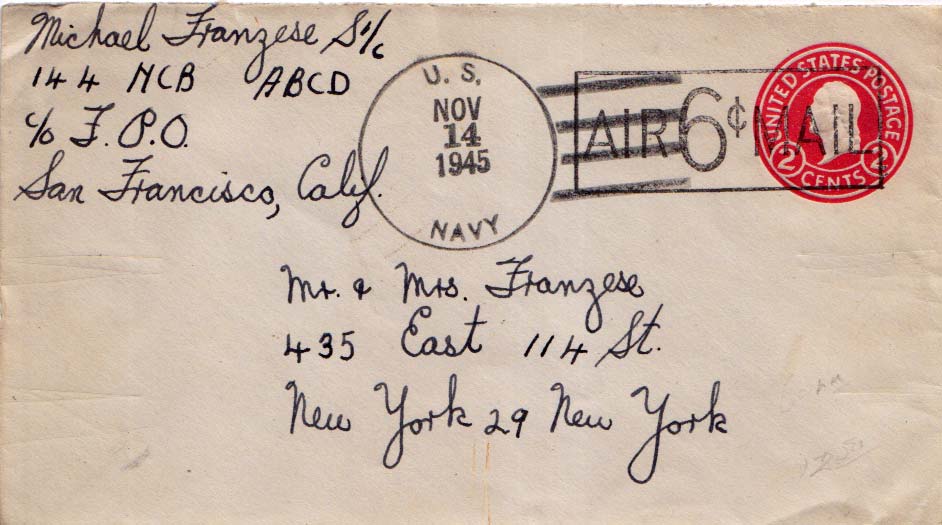 Michael Franzese S1/c
144 NCB ABCD
c/o F.P.O.
San Francisco, Calif.
U.S.
NOV
14
1945
NAVY
AIR 6¢ MAIL
UNITED STATES POSTAGE
2 CENTS 2
Mr. & Mrs. Franzese
435 East 114 St.
New York 29 New York